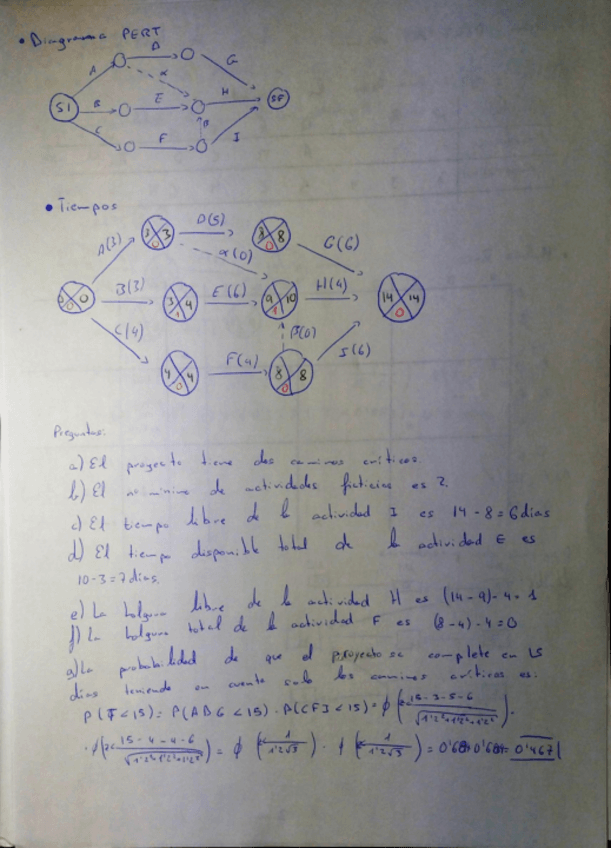 • Diagrama PERT
A
D
G
α
H
S1
B
E
SF
C
F
β
I
• Tiempos
A(3)
3 3 0
D(5)
8 8 0
G(6)
α(0)
0 0 0
B(3)
3 4 1
E(6)
9 10 1
H(4)
14 14 0
C(4)
4 4 0
F(4)
8 8 0
β(0)
I(6)
Preguntas:
a) El proyecto tiene dos caminos críticos.
b) El nº mínimo de actividades ficticias es 2.
c) El tiempo libre de la actividad I es 14 - 8 = 6 días
d) El tiempo disponible total de la actividad E es
10 - 3 = 7 días.
e) La holgura libre de la actividad H es (14 - 9) - 4 = 1
f) La holgura total de la actividad F es (8 - 4) - 4 = 0
g) La probabilidad de que el proyecto se complete en 15
días teniendo en cuenta solo los caminos críticos es:
P(T<15) = P(ADG<15) · P(CFI<15) = ϕ (z< 15-3-5-6 / √1'2²+1'2²+1'2²) ·
· ϕ (z< 15-4-4-6 / √1'2²+1'2²+1'2²) = ϕ (z< 1 / 1'2√3) · ϕ (z< 1 / 1'2√3) = 0'467